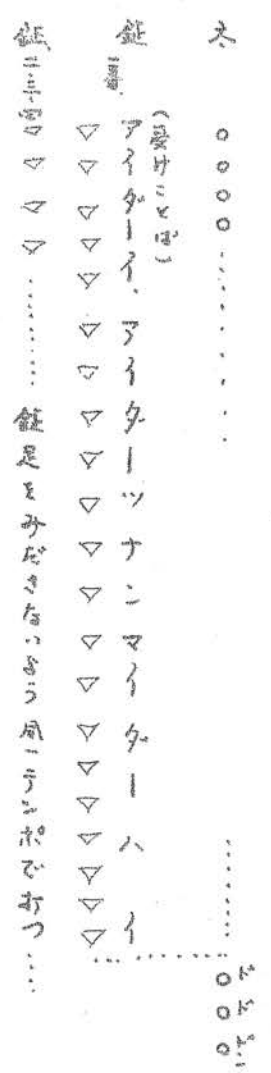 太 ○○○○・・・・・・・・・・・・ ○ド○ド○ン
(受けことば)
アイダーイ、アイターツナンマイダーハイ
鉦 ▽▽▽▽▽▽▽▽▽▽▽▽▽▽▽▽▽▽▽▽・・・・・・
鉦 ▽▽▽▽・・・・・・鉦足をみださないよう同一テンポで打つ・・・